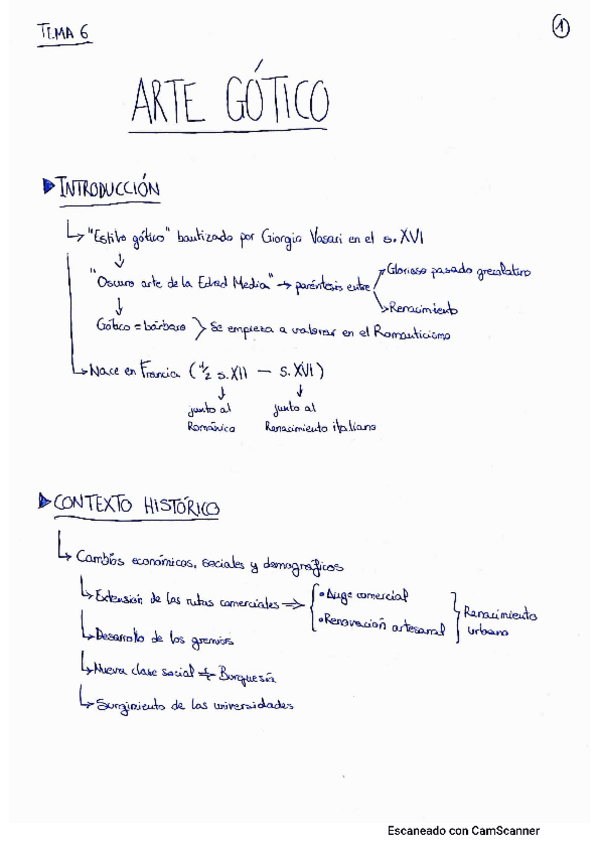 TEMA 6
1
ARTE GÓTICO
INTRODUCCIÓN
"Estilo gótico" bautizado por Giorgio Vasari en el s. XVI
"Oscuro arte de la Edad Media" → paréntesis entre
Glorioso pasado grecolatino
Renacimiento
Gótico = bárbaro } Se empieza a valorar en el Romanticismo
Nace en Francia (½ s. XII — s. XVI)
junto al
Románico
junto al
Renacimiento italiano
CONTEXTO HISTÓRICO
Cambios económicos, sociales y demográficos
Extensión de las rutas comerciales ⇒
• Auge comercial
• Renovación artesanal
Renacimiento
urbano
Desarrollo de los gremios
Nueva clase social → Burguesía
Surgimiento de las universidades
Escaneado con CamScanner